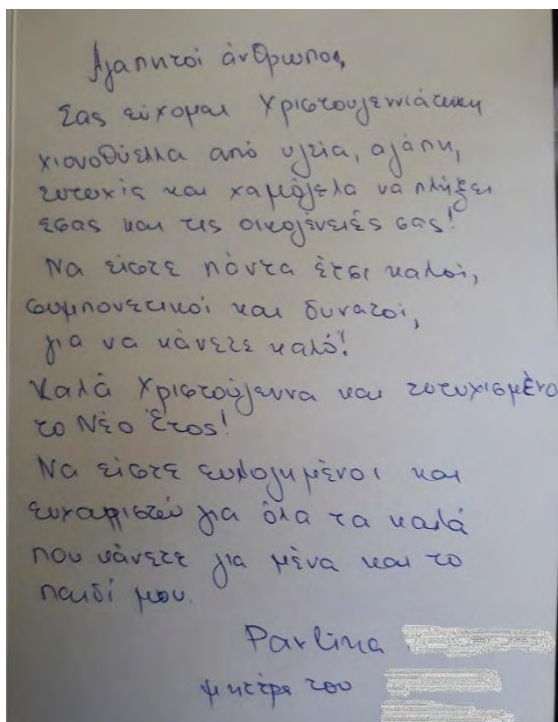 Αγαπητοί άνθρωποι,
Σας εύχομαι Χριστουγεννιάτικη
χιονοθύελλα από υγεία, αγάπη,
ευτυχίς και χαμόγελα να πλήξει
εσας και τις οικογένειές σας!
Να είστε πάντα έτσι καλοί,
συμπονετικοί και δυνατοί,
για να κάνετε καλό!
Καλά Χριστούγεννα και ευτυχισμένο
το Νέο Έτος!
Να είστε ευλογημένοι και
ευχαριστώ για όλα τα καλά
που κάνετε για μένα και το
παιδί μου.
Pavlina
μητέρα του